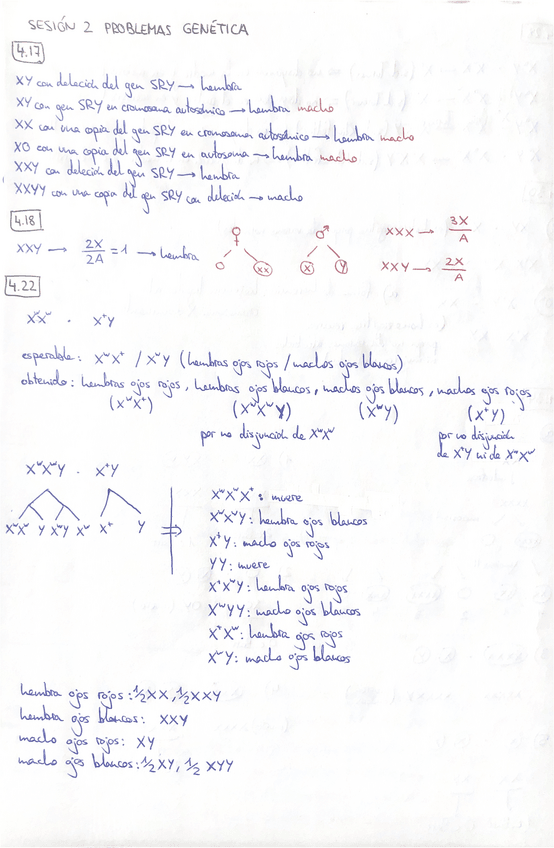 SESIÓN 2 PROBLEMAS GENÉTICA
4.17
XY con deleción del gen SRY → hembra
XY con gen SRY en cromosoma autosómico → hembra macho
XX con una copia del gen SRY en cromosoma autosómico → hembra macho
XO con una copia del gen SRY en autosoma → hembra macho
XXY con deleción del gen SRY → hembra
XXYY con una copia del gen SRY con deleción → macho
4.18
XXY → 2X/2A = 1 → hembra
♀ ♂
O XX X Y
XXX → 3X/A
XXY → 2X/A
4.22
XʷXʷ · X⁺Y
esperable: XʷX⁺ / XʷY (hembras ojos rojos / machos ojos blancos)
obtenido: hembras ojos rojos, hembras ojos blancos, machos ojos blancos, machos ojos rojos
(XʷX⁺) (XʷXʷY) (XʷY) (X⁺Y)
por no disjunción de XʷXʷ
por no disjunción
de X⁺Y ni de XʷXʷ
XʷXʷY · X⁺Y
XʷXʷ Y XʷY Xʷ X⁺ Y ⇒
XʷXʷX⁺: muere
XʷXʷY: hembra ojos blancos
X⁺Y: macho ojos rojos
YY: muere
X⁺XʷY: hembra ojos rojos
XʷYY: macho ojos blancos
X⁺Xʷ: hembra ojos rojos
XʷY: macho ojos blancos
hembra ojos rojos: 1/2 XX, 1/2 XXY
hembra ojos blancos: XXY
macho ojos rojos: XY
macho ojos blancos: 1/2 XY, 1/2 XYY